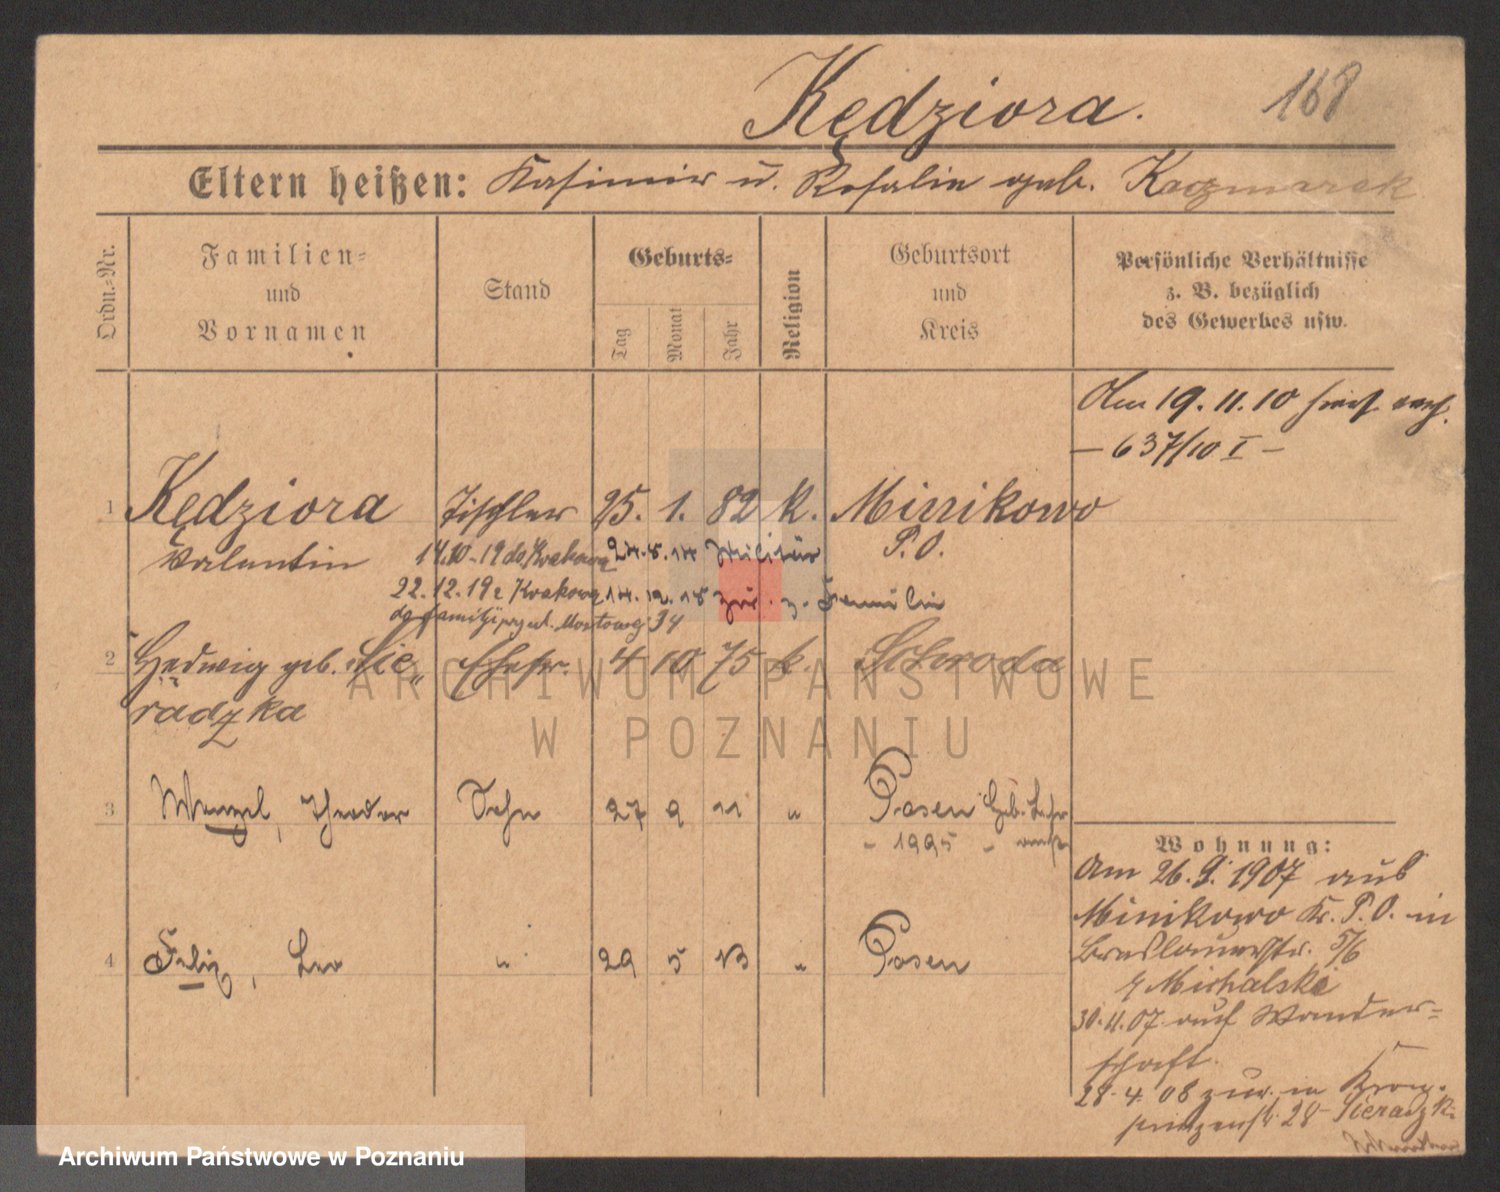 Kędziora.
168
Eltern heißen: Kasimir u. Rosalie geb. Kaczmarek
Ordn.-Nr.
Familien-
und
Vornamen
Stand
Geburts-
Tag
Monat
Jahr
Religion
Geburtsort
und
Kreis
Persönliche Verhältnisse
z. B. bezüglich
des Gewerbes usw.
Am 19. 11. 10
— 637/10 I —
1 Kędziora Tischler 25. 1. 82 k. Minikowo
Valentin 14.10.19 do Krakowa 24.5.14 Militär P. O.
22.12.19 z Krakowa 14.12.18 zur. z. Familie
do familji przy ul. Mostowej 34
2 Hedwig geb. Sie- Ehefr. 4 10 75 k. Schroda
radzka
3 Wenzel, Theodor Sohn 27 9 11 " Posen Geb. Urk.
- 1995 -
4 Felix, Leo " 29 5 13 " Posen
Wohnung:
Am 26. 9. 1907 aus
Minikowo Kr. P. O. in
Breslauerstr. 5/6
b/ Michalski
30.11.07 auf Wander-
schaft.
28. 4. 08 zur. in Kron-
prinzenst. 28 Sieradzk.
ARCHIWUM PAŃSTWOWE
W POZNANIU
Archiwum Państwowe w Poznaniu